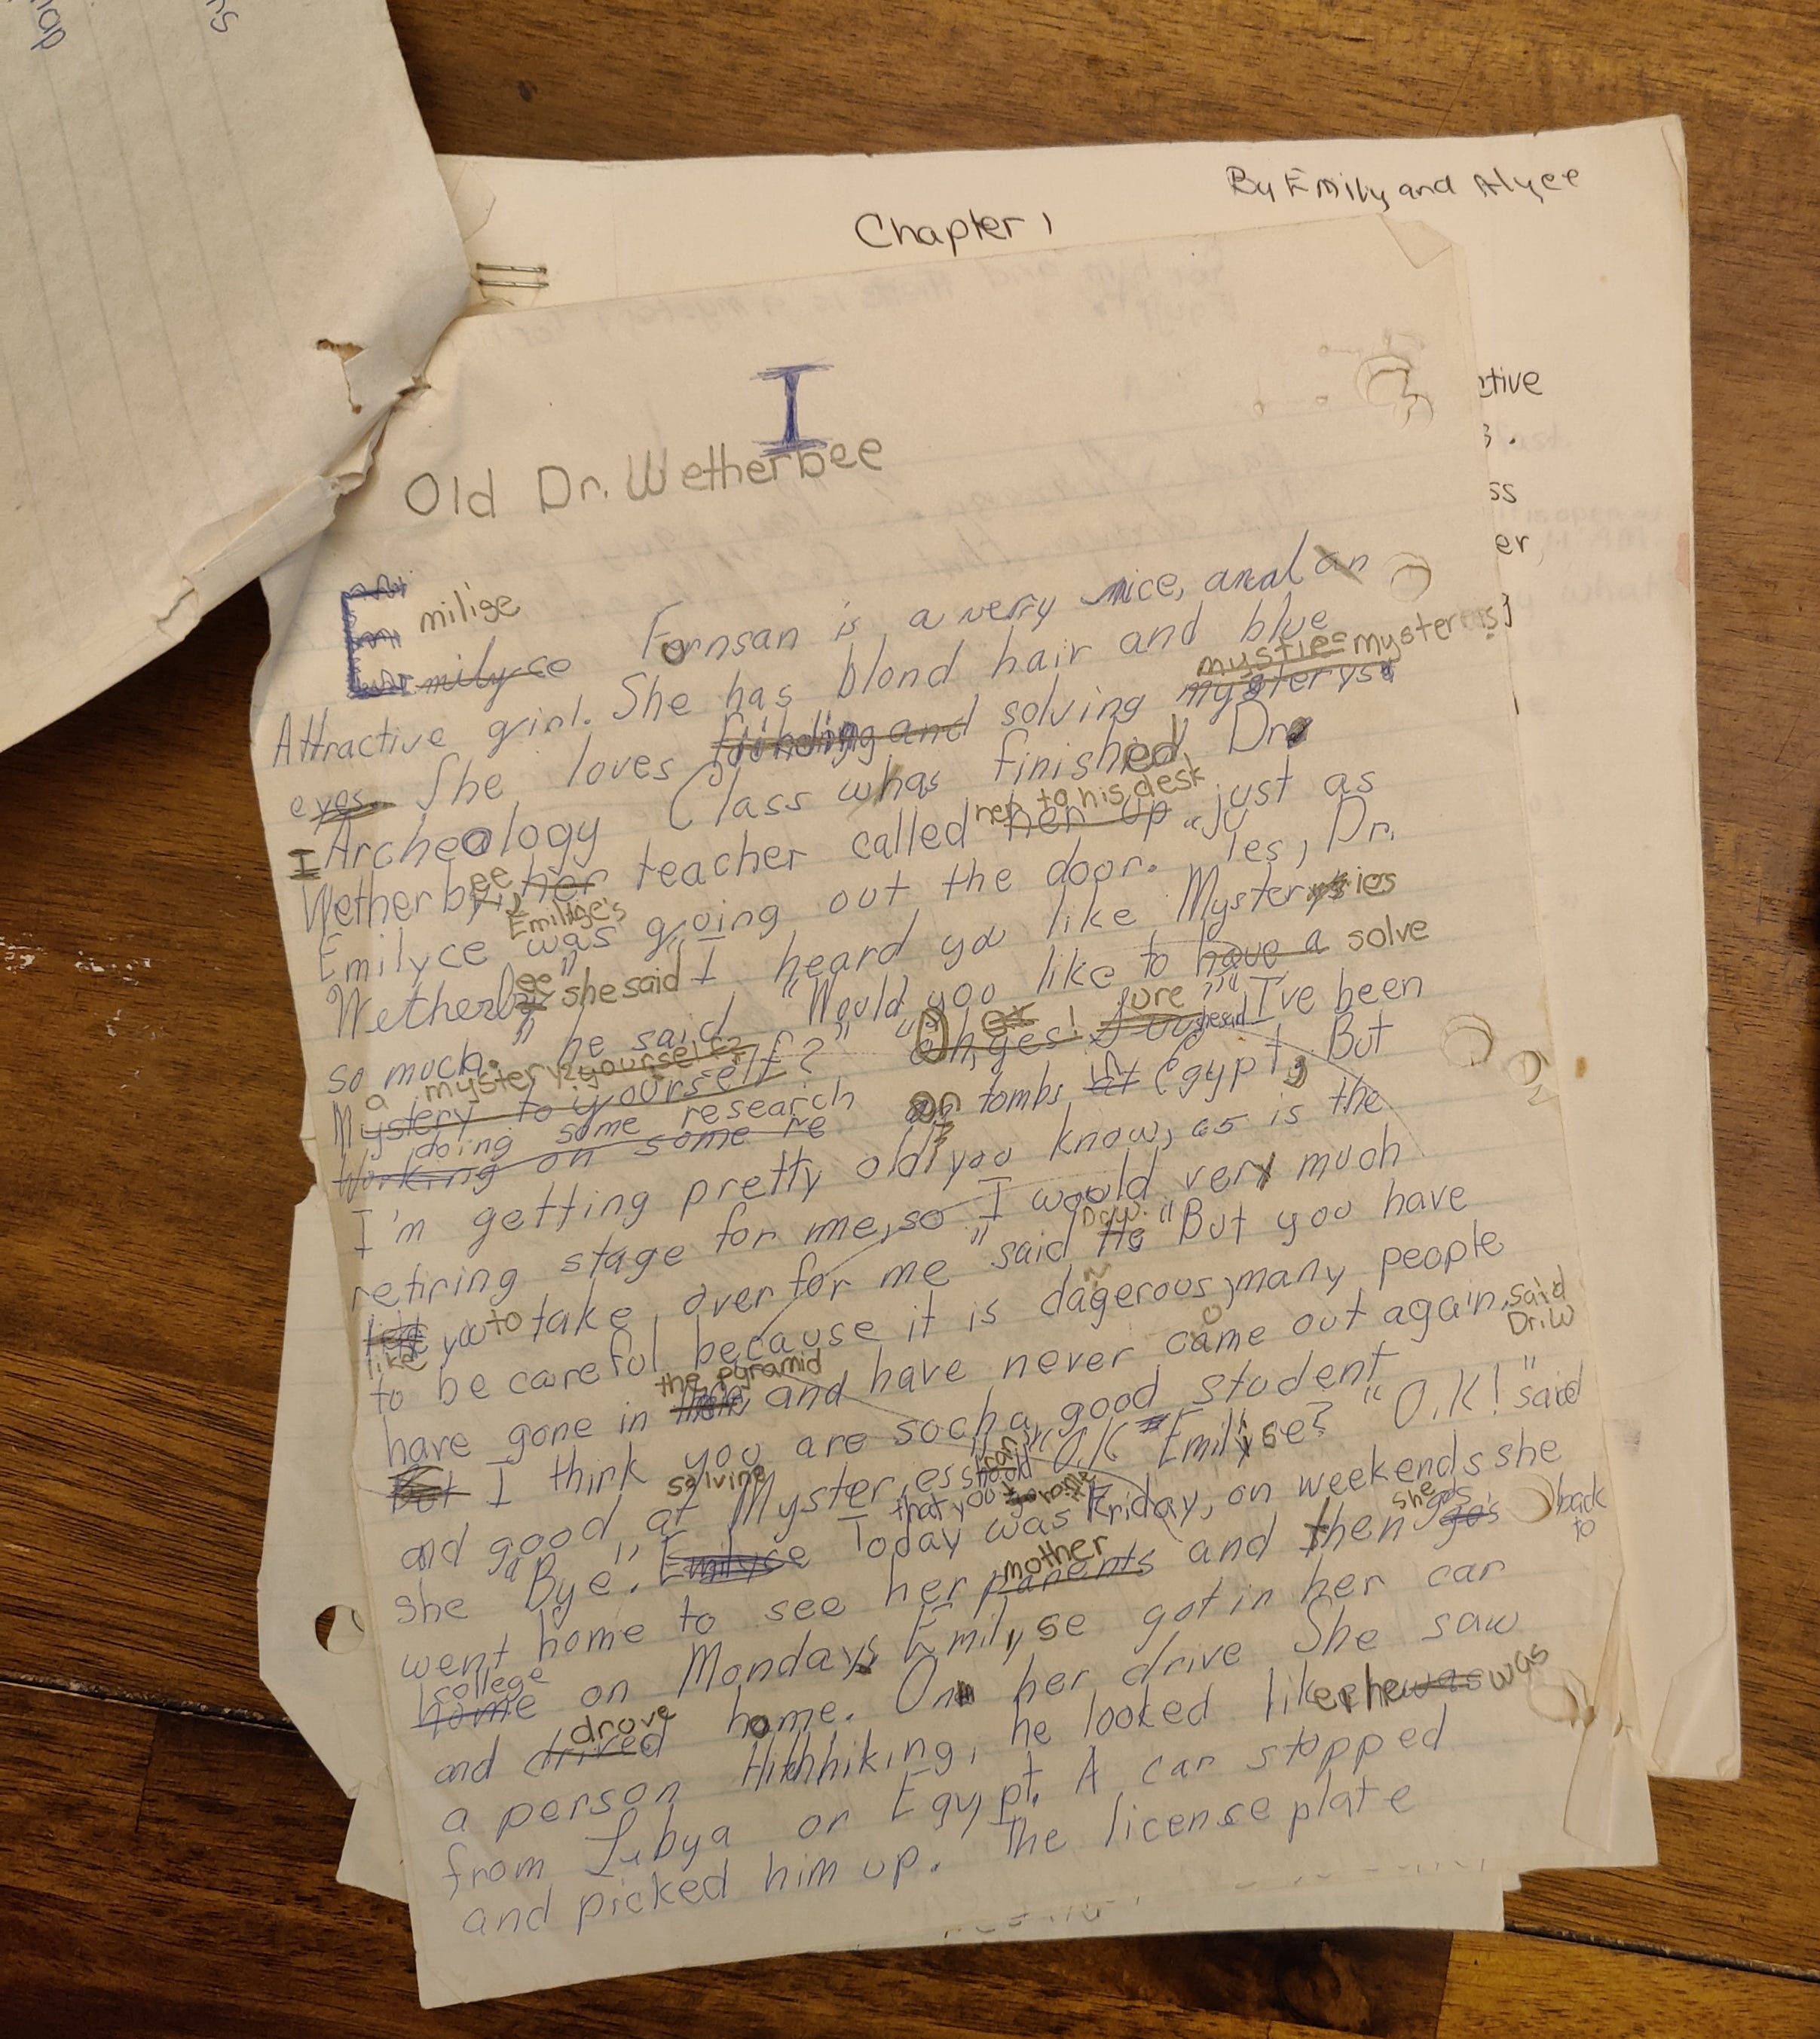 By Emily and Alyce
Chapter 1
I
Old Dr. Wetherbee
Emilige
Emilyce Fornsan is a very nice, and an
Attractive grinl. She has blond hair and blue
mystie mysteries
eyes. She loves finding and solving mysterys.
Archeology Class whas finished, Dr.
her to his desk
Wetherbee, her teacher called her up just as
Emilige's
Emilyce was going out the door. "Yes, Dr.
Wetherbee" she said I heard you like Mysteries
so much." he said "Would you like to have a solve
a mystery yourself?
Mystery to yourself?" "Oh, yes! Sure" I've been
doing some research
Working on some re on tombs in Egypt, But
I'm getting pretty old, you know, as is the
retiring stage for me, so I would very much
Dr.W.
like you to take over for me" said He "But you have
to be careful because it is dagerous, many people
the pyramid
have gone in and have never come out again, said
Dr.W
But I think you are socha good student
solving
and good at Mysteries that you O.K Emilyse? "O.K!" said
she "Bye". Emilyce Today was Friday, on weekends she
mother
went home to see her parents and then she goes back
to
college
home on Mondays Emilyse got in her car
drove
and drived home. On her drive She saw
a person Hithhiking, he looked like he was was
from Lubya or Egypt. A car stopped
and picked him up. The license plate
ss
er,